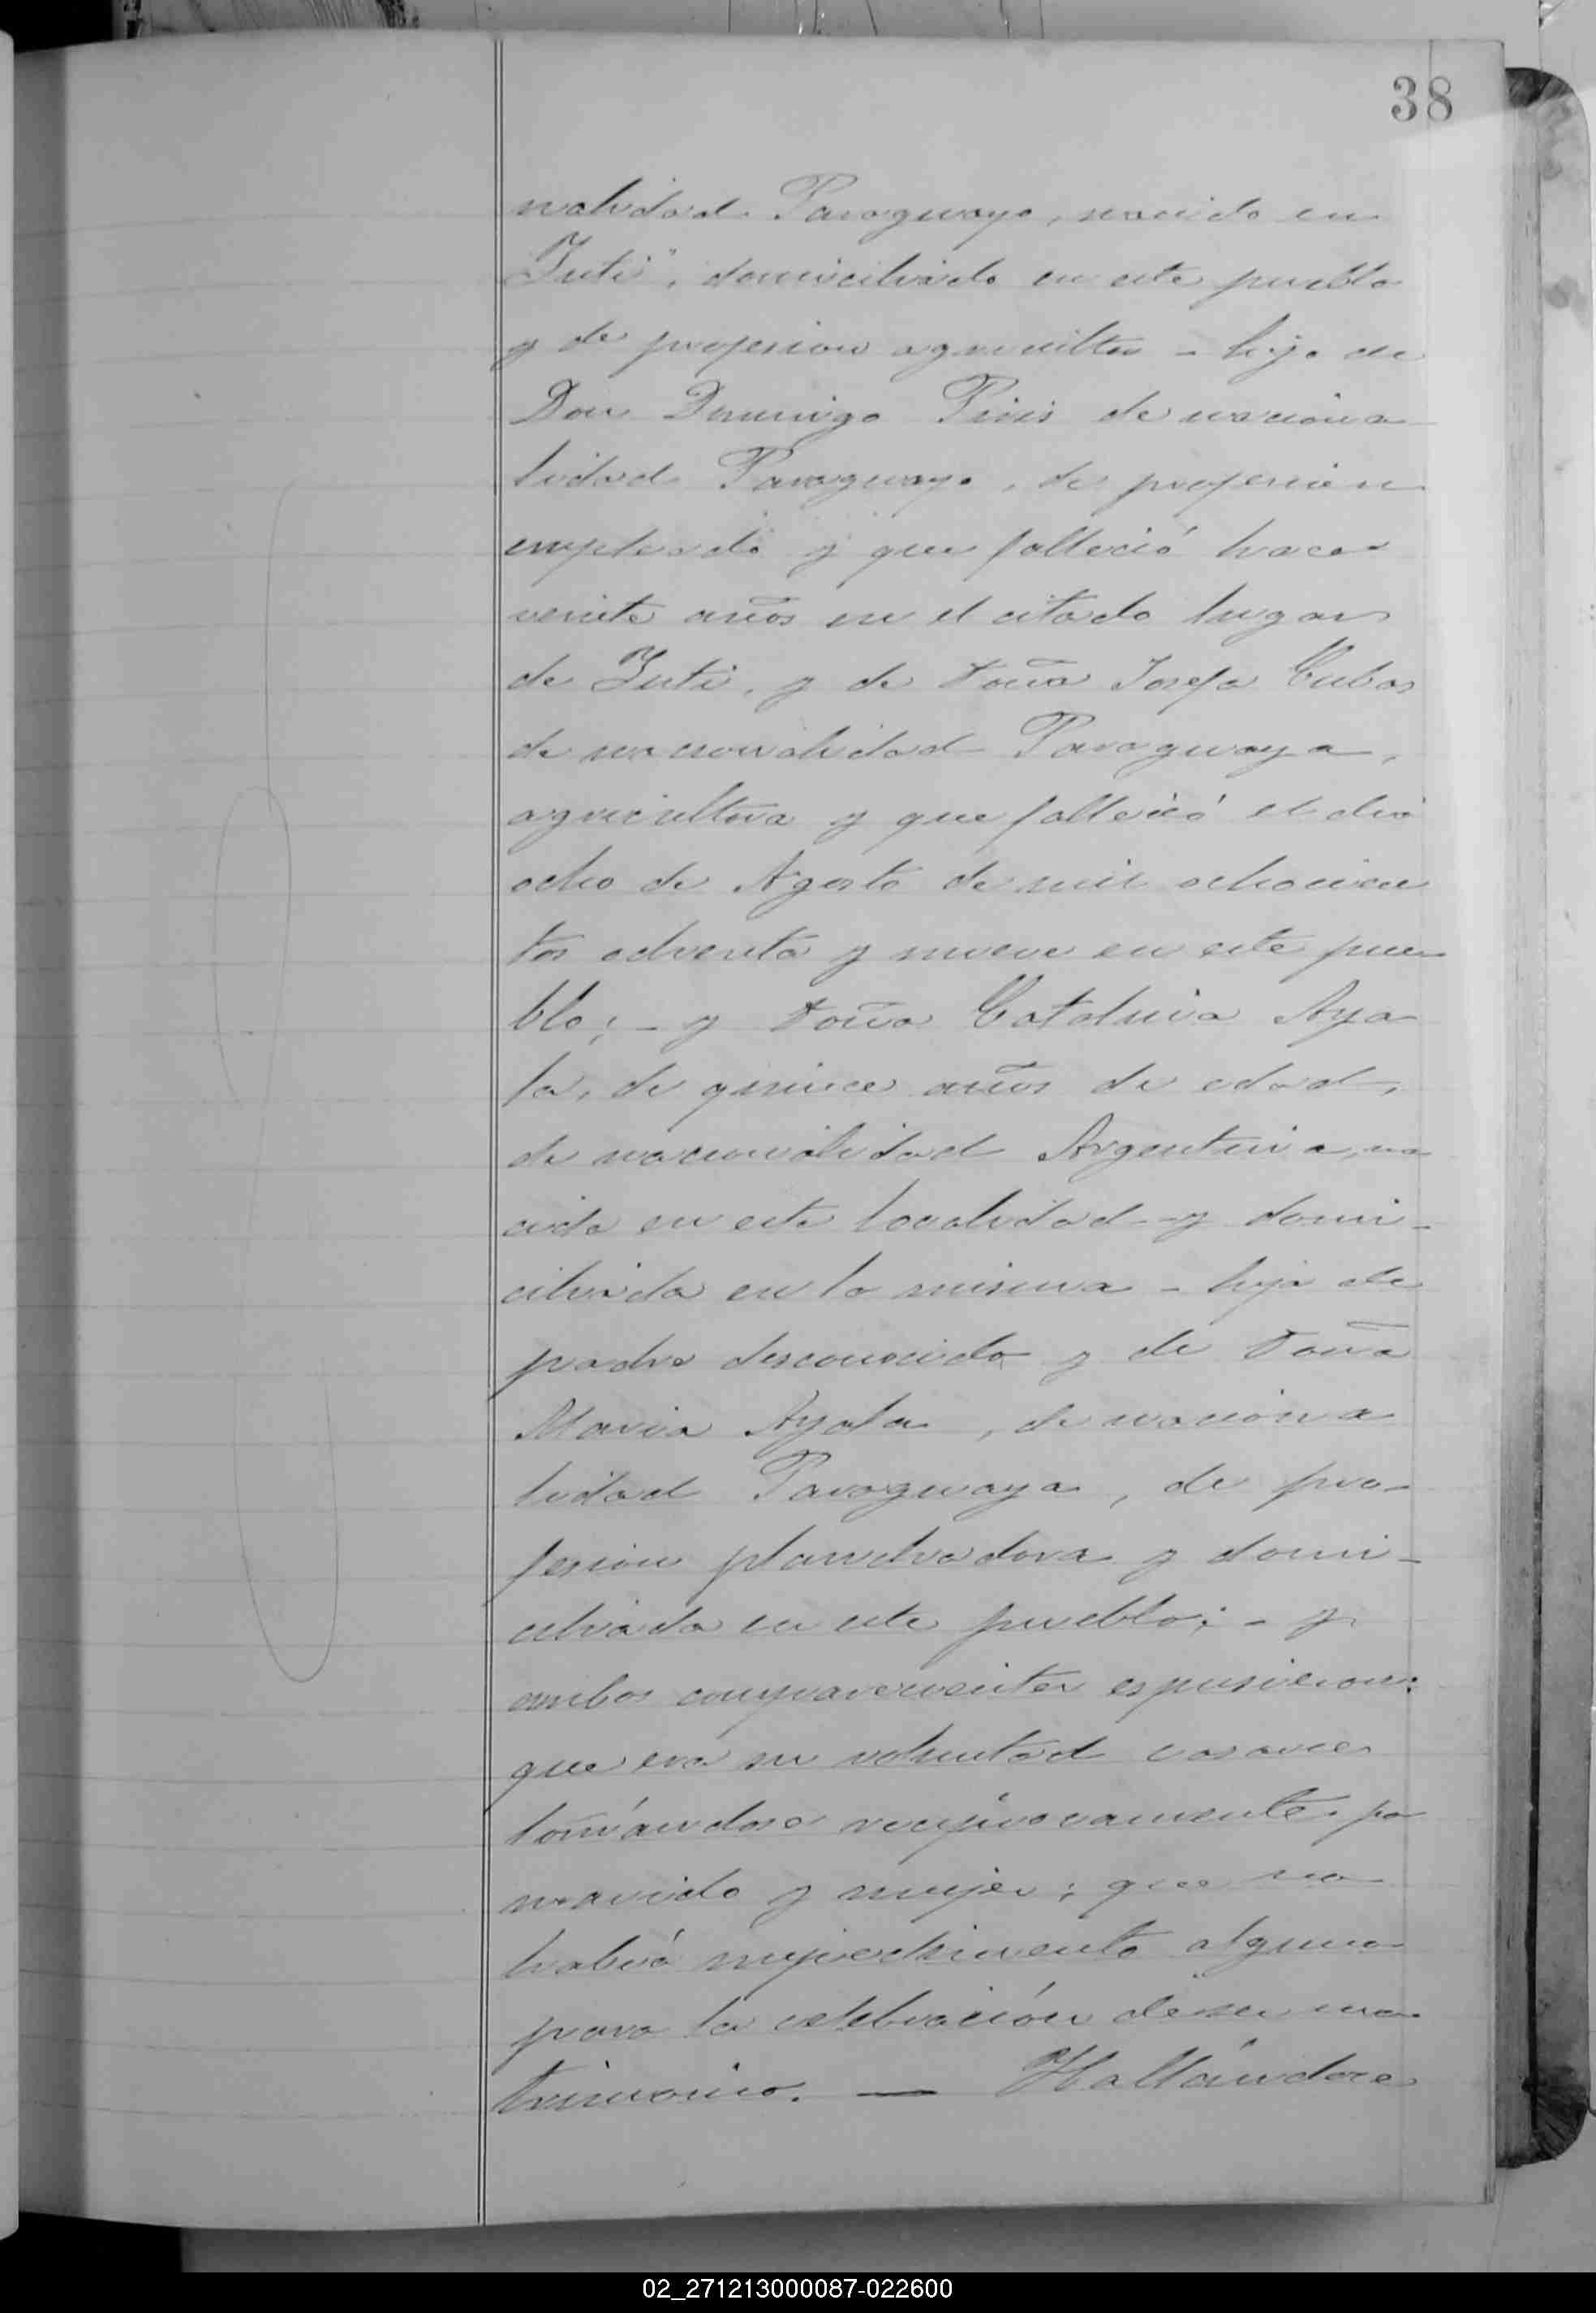 38
nalidad Paraguayo, nacido en
"Yuti", domiciliado en este pueblo
y de profesion agricultor - hijo de
Don Domingo de naciona
lidad Paraguayo, de profesion
empleado y que falleció hace
veinte años en el citado lugar
de Yuti, y de Doña Josefa Cubas
de nacionalidad Paraguaya,
agricultora y que falleció el dia
ocho de Agosto de mil ochocien
tos ochenta y nueve en este pue
blo; - y Doña Catalina Aya
la, de quince años de edad,
de nacionalidad Argentina, na
cida en esta localidad - y domi-
ciliada en la misma - hija de
padre desconocido y de Doña
Maria Ayala, de naciona
lidad Paraguaya, de pro-
fesion planchadora y domi-
ciliada en este pueblo; - y
ambos comparecientes espusieron:
que era su voluntad casarse
tomándose reciprocamente po
marido y mujer; que no
habia impedimento alguno
para la celebración de su ma
trimonio. — Hallándose
02_271213000087-022600